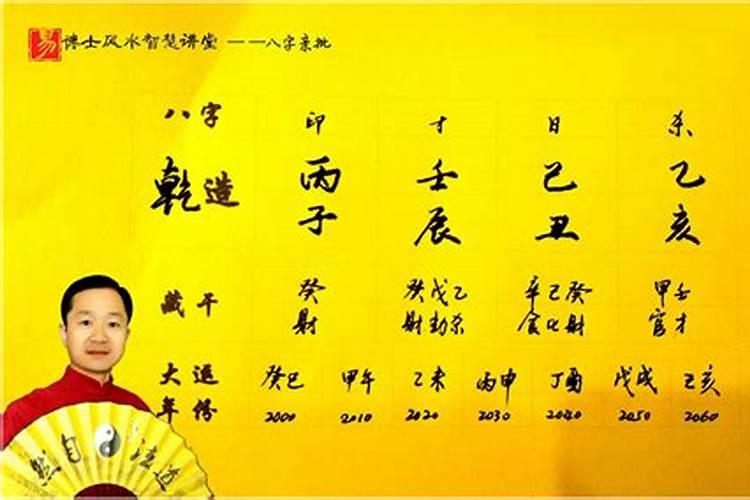 易 博士风水智慧讲堂 ——八字亲批
八字 印 才 日 杀
乾造 丙 壬 己 乙
子 辰 丑 亥
藏干 癸 癸戊乙 辛己癸 甲壬
财 财劫杀 食比财 官才
大运 癸巳 甲午 乙未 丙申 丁酉 戊戌 亥
年份 2000 2010 2020 2030 2040 2050 2060
道法自然